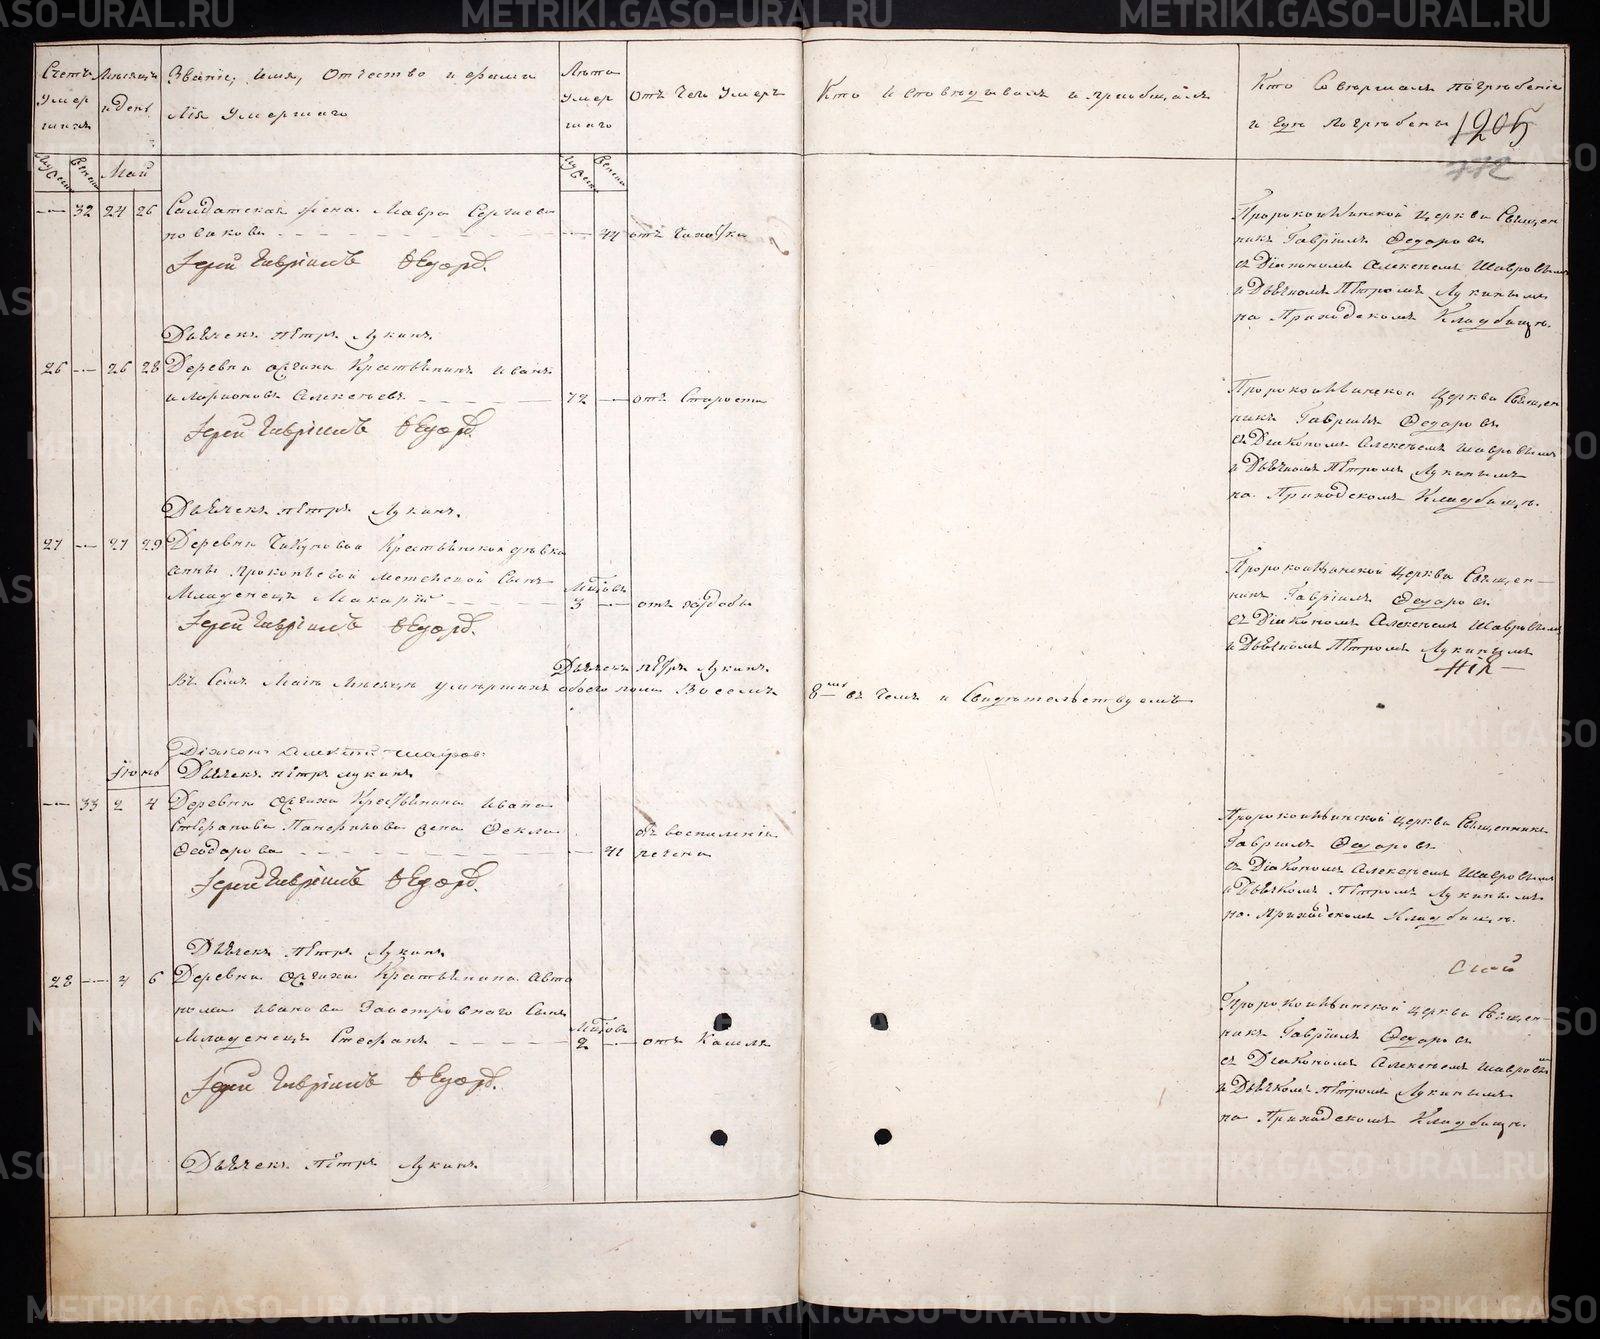 Счетъ умершихъ
Мѣсяцъ и день
Званіе, имя, отчество и фами
лія умершаго
Лѣта умершаго
Отъ чего умеръ
Кто исповѣдывалъ и пріобщалъ
Кто совершалъ погребеніе
и гдѣ погребены
1205
Май
32 24 26 Салдатская жена Мавра Сергиева
44 отъ
Іерей Гавріилъ Ѳедоровъ
Дьячекъ Петръ Лукинъ
Пророкоильинской церкви Священ
никъ Гавріилъ Ѳедоровъ
съ Діакономъ Алексѣемъ Шавровымъ
и Дьячкомъ Петромъ Лукинымъ
на Приходскомъ Кладбищѣ
26 26 28 Деревни Крестьянинъ Иванъ
Иларионовъ Алексѣевъ
72 отъ Старости
Іерей Гавріилъ Ѳедоровъ
Дьячекъ Петръ Лукинъ
Пророкоильинской церкви Священ
никъ Гавріилъ Ѳедоровъ
съ Діакономъ Алексѣемъ Шавровымъ
и Дьячкомъ Петромъ Лукинымъ
на Приходскомъ Кладбищѣ
27 27 29 Деревни Крестьянской дѣвки
Анны Прокопьевой Сынъ
Младенецъ Макарій
3
Іерей Гавріилъ Ѳедоровъ
Дьячекъ Петръ Лукинъ
Пророкоильинской церкви Священ
никъ Гавріилъ Ѳедоровъ
съ Діакономъ Алексѣемъ Шавровымъ
и Дьячкомъ Петромъ Лукинымъ
Въ Семъ Маіѣ Мѣсяцѣ умершихъ обоего пола Восемь 8 въ чемъ и Свидѣтельствуемъ
Діаконъ Алексѣй Шавровъ
Дьячекъ Петръ Лукинъ
Іюнь
33 2 4 Деревни Крестьянина Ивана
Стефанова жена Ѳекла
Ѳеодорова
41 воспаленія
печени
Іерей Гавріилъ Ѳедоровъ
Дьячекъ Петръ Лукинъ
Пророкоильинской церкви Священникъ
Гавріилъ Ѳедоровъ
съ Діакономъ Алексѣемъ Шавровымъ
и Дьячкомъ Петромъ Лукинымъ
на Приходскомъ Кладбищѣ
28 4 6 Деревни Крестьянина Авто
нома Иванова Заостровного Сынъ
Младенецъ Стефанъ
2 отъ Кашля
Іерей Гавріилъ Ѳедоровъ
Дьячекъ Петръ Лукинъ
Пророкоильинской церкви Священ
никъ Гавріилъ Ѳедоровъ
съ Діакономъ Алексѣемъ Шавровымъ
и Дьячкомъ Петромъ Лукинымъ
на Приходскомъ Кладбищѣ
METRIKI.GASO-URAL.RU